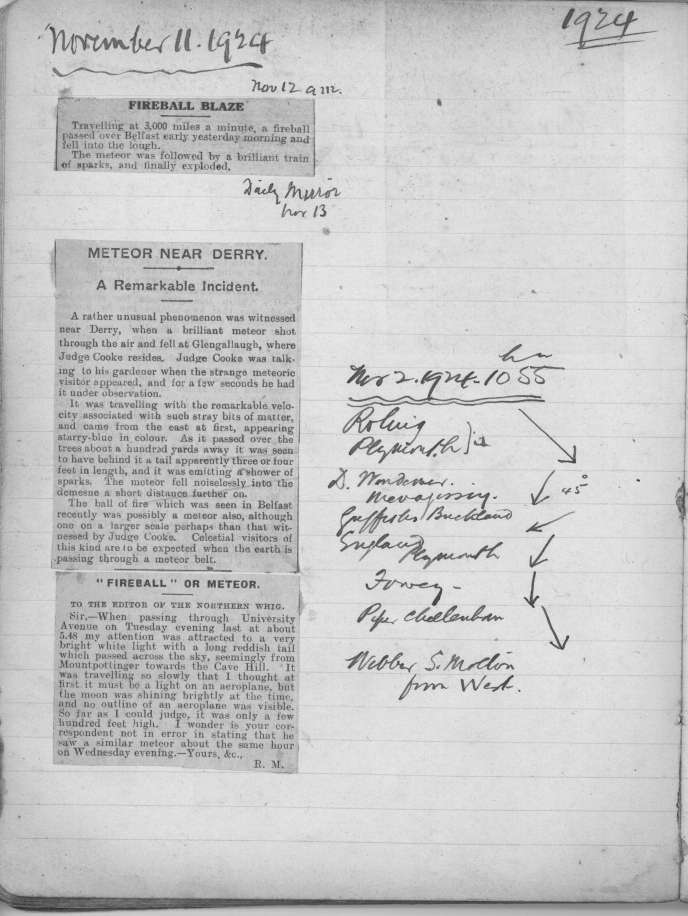 1924
November 11. 1924
Nov 12 a.m.
FIREBALL BLAZE
Travelling at 3,000 miles a minute, a fireball
passed over Belfast early yesterday morning and
fell into the lough.
The meteor was followed by a brilliant train
of sparks, and finally exploded.
Daily Mirror
Nov 13
METEOR NEAR DERRY.
A Remarkable Incident.
A rather unusual phenomenon was witnessed
near Derry, when a brilliant meteor shot
through the air and fell at Glengallaugh, where
Judge Cooke resides. Judge Cooke was talk-
ing to his gardener when the strange meteoric
visitor appeared, and for a few seconds he had
it under observation.
It was travelling with the remarkable velo-
city associated with such stray bits of matter,
and came from the east at first, appearing
starry-blue in colour. As it passed over the
trees about a hundred yards away it was seen
to have behind it a tail apparently three or four
feet in length, and it was emitting a shower of
sparks. The meteor fell noiselessly into the
demesne a short distance further on.
The ball of fire which was seen in Belfast
recently was possibly a meteor also, although
one on a larger scale perhaps than that wit-
nessed by Judge Cooke. Celestial visitors of
this kind are to be expected when the earth is
passing through a meteor belt.
"FIREBALL" OR METEOR.
TO THE EDITOR OF THE NORTHERN WHIG.
Sir,—When passing through University
Avenue on Tuesday evening last at about
5.48 my attention was attracted to a very
bright white light with a long reddish tail
which passed across the sky, seemingly from
Mountpottinger towards the Cave Hill. It
was travelling so slowly that I thought at
first it must be a light on an aeroplane, but
the moon was shining brightly at the time,
and no outline of an aeroplane was visible.
So far as I could judge, it was only a few
hundred feet high. I wonder is your cor-
respondent not in error in stating that he
saw a similar meteor about the same hour
on Wednesday evening.—Yours, &c.,
R. M.
Nov 2. 1924. 10 55
Plymouth
D.
Mevagissey. 45°
Buckland
England Plymouth
Fowey -
Piper Cheltenham
Webber S. Molton
from West.